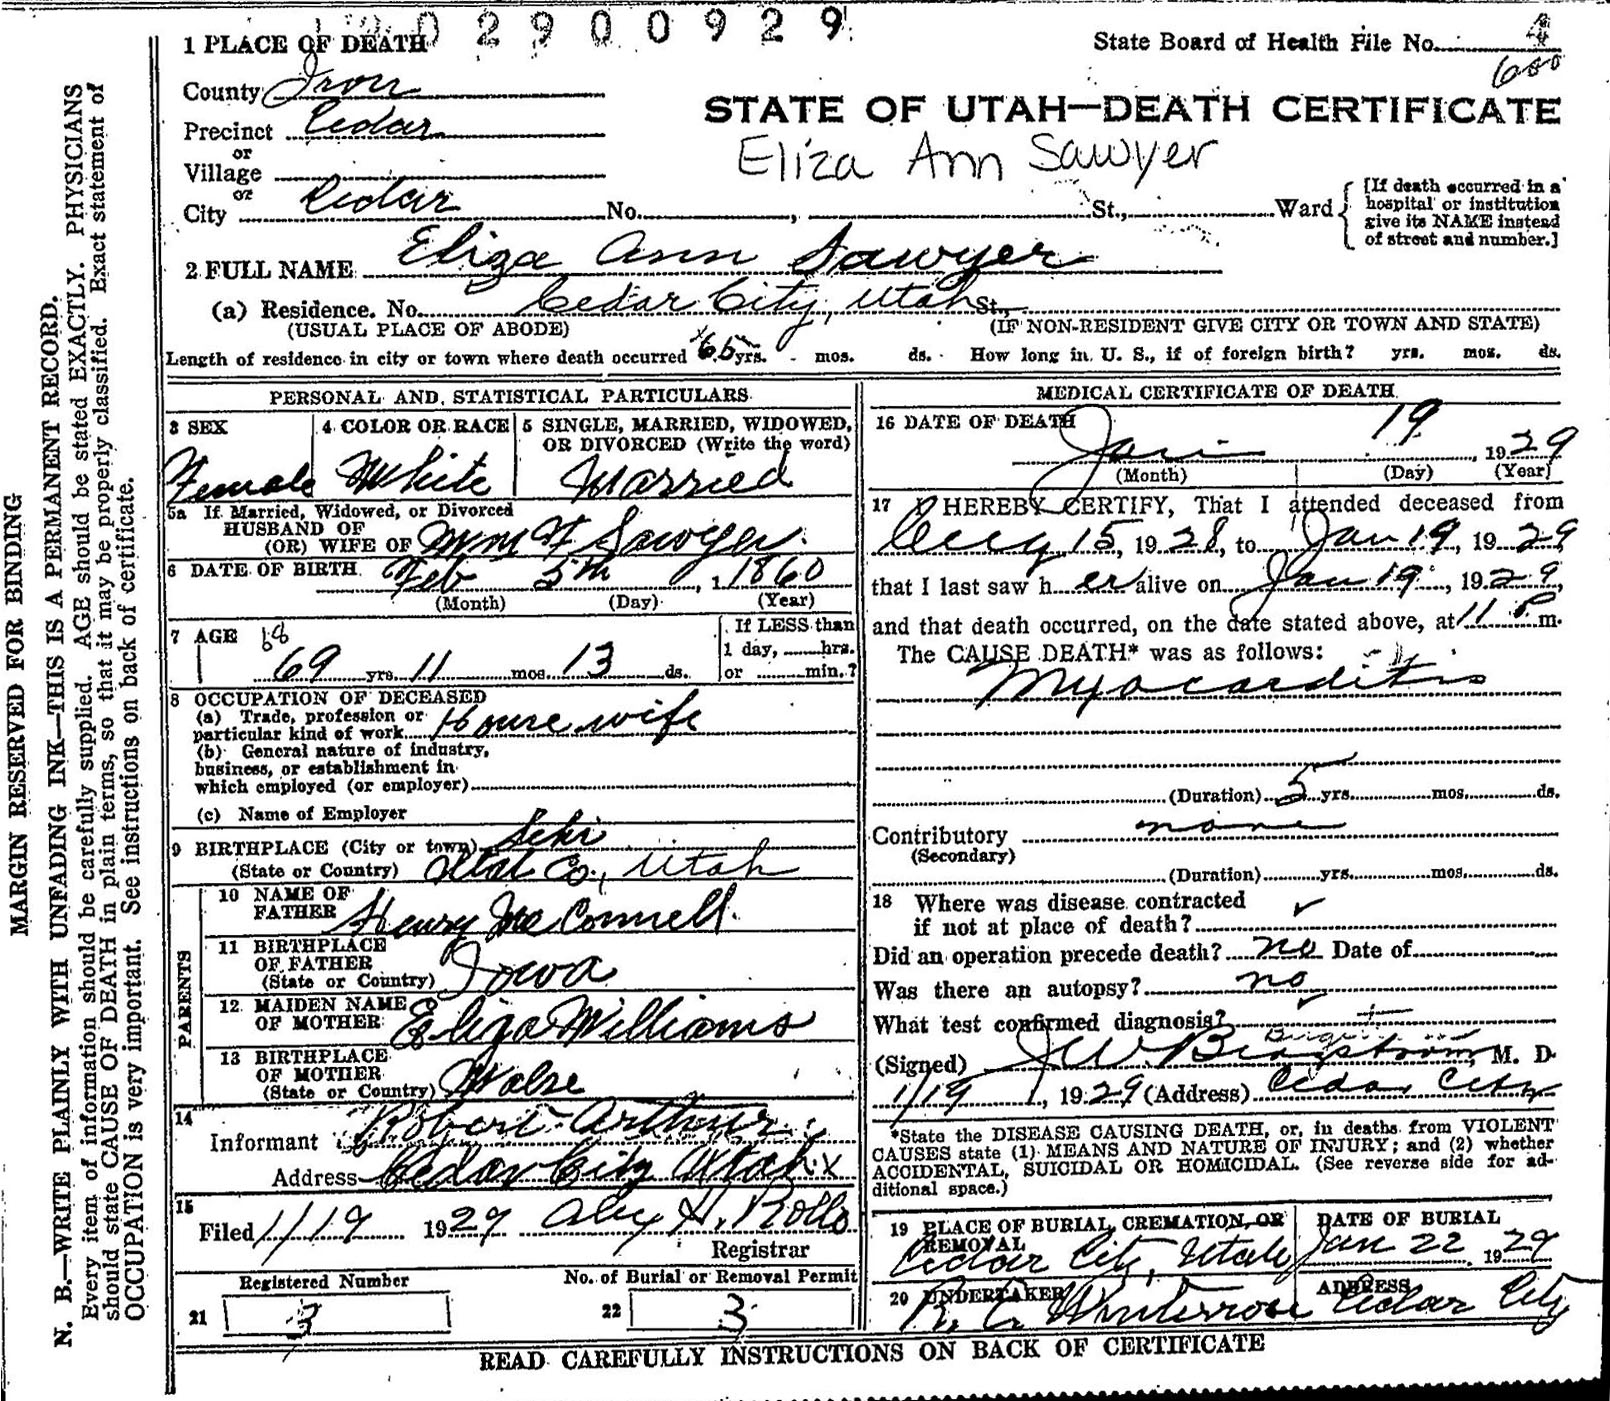 2900929
1 PLACE OF DEATH
State Board of Health File No. 4
600
County Iron
STATE OF UTAH—DEATH CERTIFICATE
Precinct Cedar
Eliza Ann Sawyer
or
Village
or
City Cedar No. , St., Ward
[If death occurred in a
hospital or institution
give its NAME instead
of street and number.]
2 FULL NAME Eliza Ann Sawyer
(a) Residence. No. Cedar City, Utah St.,
(USUAL PLACE OF ABODE) (IF NON-RESIDENT GIVE CITY OR TOWN AND STATE)
Length of residence in city or town where death occurred 65 yrs. - mos. ds. How long in U. S., if of foreign birth? yrs. mos. ds.
PERSONAL AND STATISTICAL PARTICULARS
3 SEX
Female
4 COLOR OR RACE
White
5 SINGLE, MARRIED, WIDOWED,
OR DIVORCED (Write the word)
Married
5a If Married, Widowed, or Divorced
HUSBAND OF
(OR) WIFE OF Wm F Sawyer
6 DATE OF BIRTH Feb 5th, 1 1860
(Month) (Day) (Year)
7 AGE 68
69 yrs. 11 mos. 13 ds.
If LESS than
1 day, hrs.
or min.?
8 OCCUPATION OF DECEASED
(a) Trade, profession or
particular kind of work House wife
(b) General nature of industry,
business, or establishment in
which employed (or employer)
(c) Name of Employer
9 BIRTHPLACE (City or town)
(State or Country) Utah Co., Utah
PARENTS
10 NAME OF
FATHER Henry McConnell
11 BIRTHPLACE
OF FATHER
(State or Country) Iowa
12 MAIDEN NAME
OF MOTHER Eliza Williams
13 BIRTHPLACE
OF MOTHER
(State or Country)
14
Informant Robert Arthur
Address Cedar City Utah x
15
Filed 1/19 1929 Alex H. Rollo
Registrar
Registered Number
21 3
No. of Burial or Removal Permit
22 3
MEDICAL CERTIFICATE OF DEATH
16 DATE OF DEATH
Jan 19, 1929
(Month) (Day) (Year)
17 I HEREBY CERTIFY, That I attended deceased from
Aug 15, 1928, to Jan 19, 1929
that I last saw h er alive on Jan 19, 1929,
and that death occurred, on the date stated above, at 11 P m.
The CAUSE DEATH* was as follows:
Myocarditis
(Duration) 5 yrs. mos. ds.
Contributory none
(Secondary)
(Duration) yrs. mos. ds.
18 Where was disease contracted
if not at place of death?
Did an operation precede death? no Date of
Was there an autopsy? no
What test confirmed diagnosis?
(Signed) J.W. Bergstrom, M. D.
1/19, 1929 (Address) Cedar City
*State the DISEASE CAUSING DEATH, or, in deaths from VIOLENT
CAUSES state (1) MEANS AND NATURE OF INJURY; and (2) whether
ACCIDENTAL, SUICIDAL OR HOMICIDAL. (See reverse side for ad-
ditional space.)
19 PLACE OF BURIAL, CREMATION, OR
REMOVAL
Cedar City, Utah
DATE OF BURIAL
Jan 22 1929
20 UNDERTAKER
ADDRESS
Cedar City
READ CAREFULLY INSTRUCTIONS ON BACK OF CERTIFICATE
MARGIN RESERVED FOR BINDING
N. B.—WRITE PLAINLY WITH UNFADING INK—THIS IS A PERMANENT RECORD.
Every item of information should be carefully supplied. AGE should be stated EXACTLY. PHYSICIANS
should state CAUSE OF DEATH in plain terms, so that it may be properly classified. Exact statement of
OCCUPATION is very important. See instructions on back of certificate.